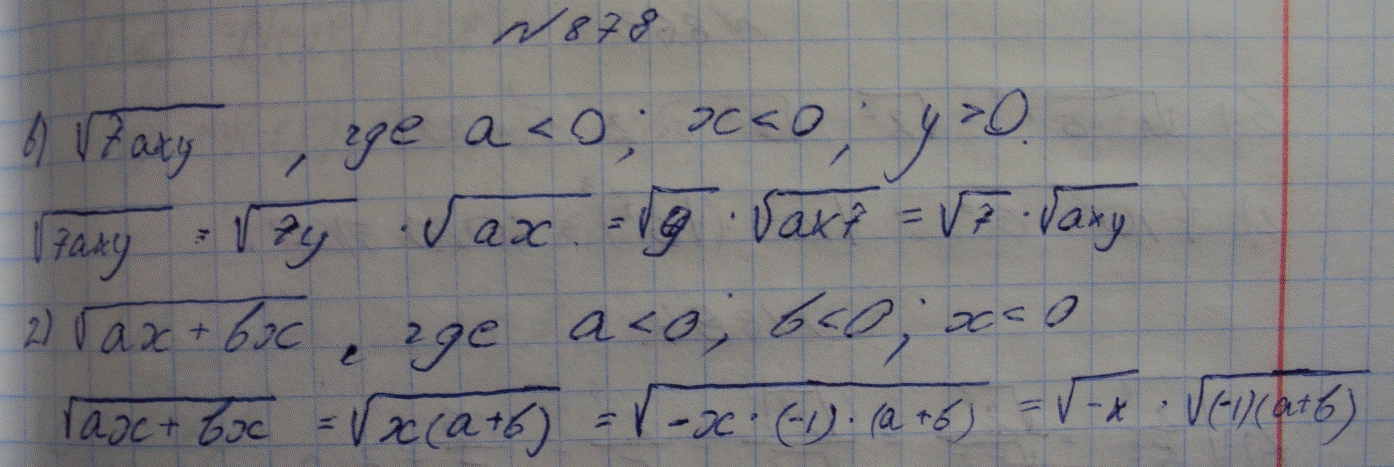 №878.
в) √7axy, где a < 0; x < 0; y > 0.
√7axy = √7y · √ax = √y · √ax7 = √7 · √axy
г) √ax + bx, где a < 0; b < 0; x < 0
√ax + bx = √x(a+b) = √-x · (-1) · (a+b) = √-x · √(-1)(a+b)